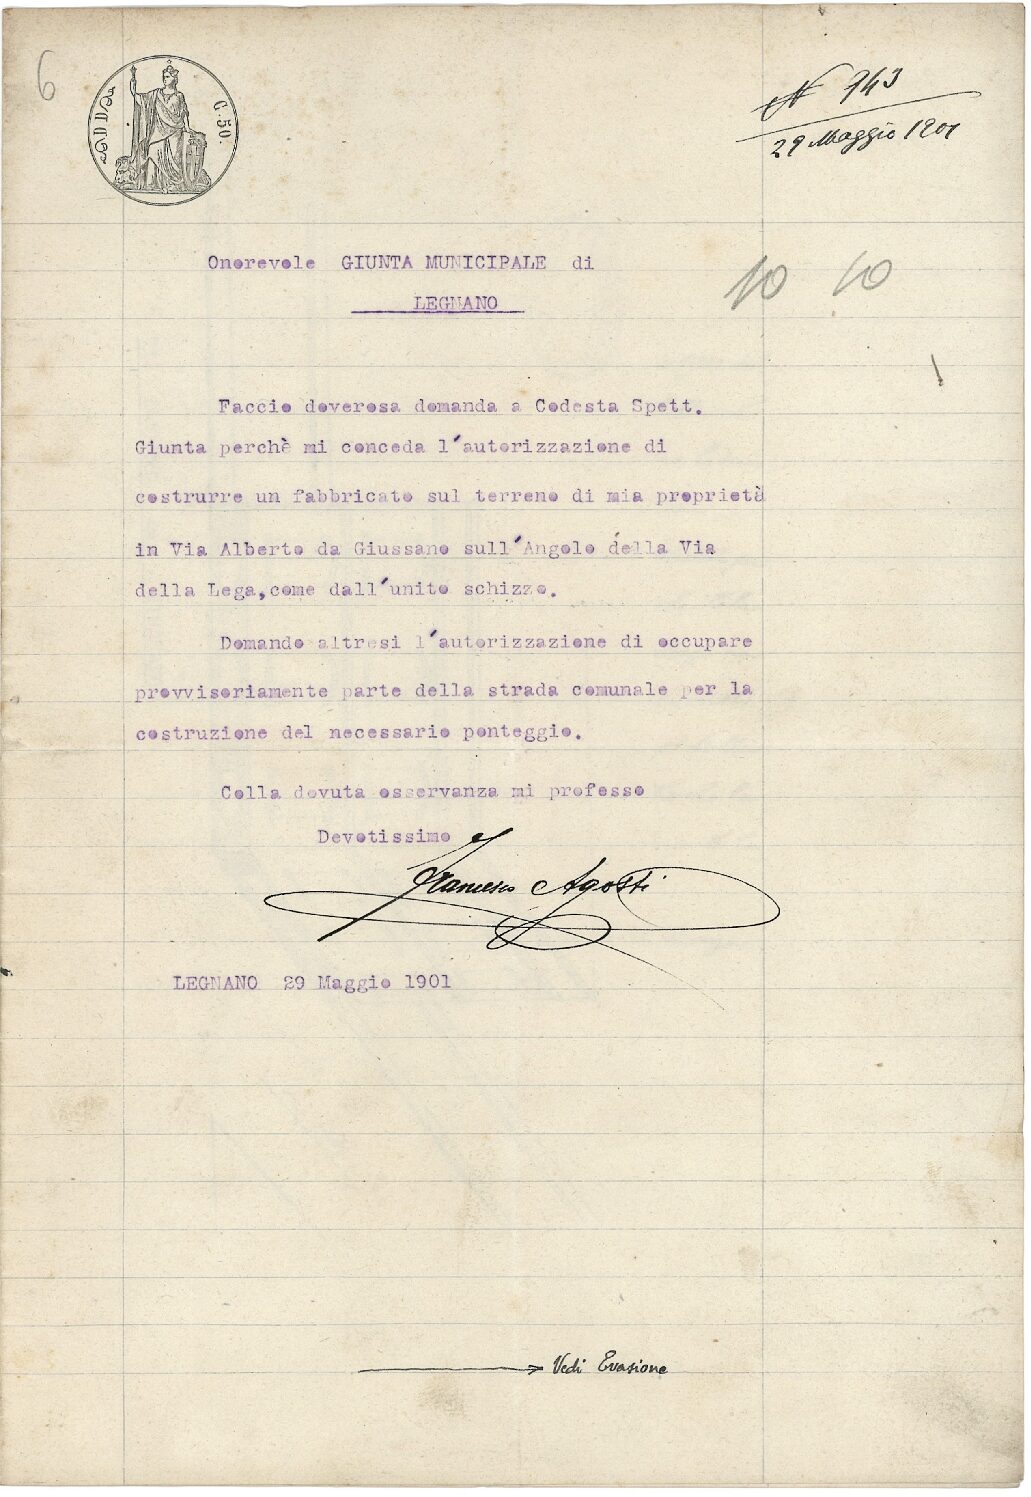 6
C. 50.
N 743
29 Maggio 1901
Onorevole GIUNTA MUNICIPALE di
LEGNANO
10 10
Faccio doverosa domanda a Codesta Spett.
Giunta perchè mi conceda l'autorizzazione di
costrurre un fabbricato sul terreno di mia proprietà
in Via Alberto da Giussano sull'Angolo della Via
della Lega,come dall'unito schizzo.
Domando altresi l'autorizzazione di occupare
provvisoriamente parte della strada comunale per la
costruzione del necessario ponteggio.
Colla dovuta osservanza mi professo
Devotissimo
Francesco Agosti
LEGNANO 29 Maggio 1901
Vedi Evasione